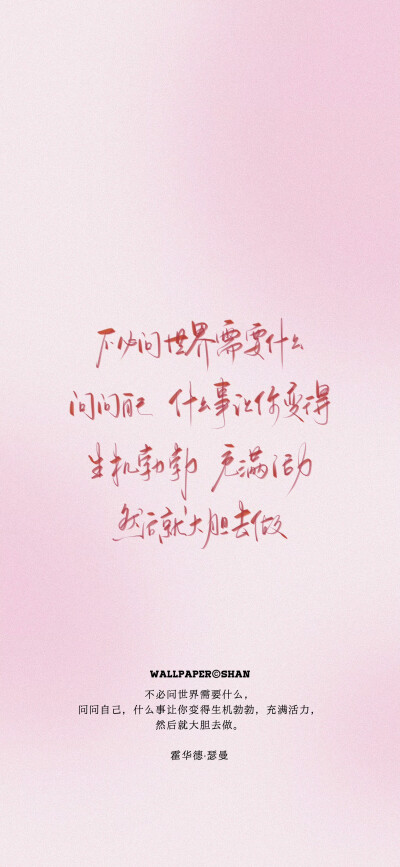 不必问世界需要什么
问问自己 什么事让你变得
生机勃勃 充满活力
然后就大胆去做
WALLPAPER©SHAN
不必问世界需要什么，
问问自己，什么事让你变得生机勃勃，充满活力，
然后就大胆去做。
霍华德·瑟曼